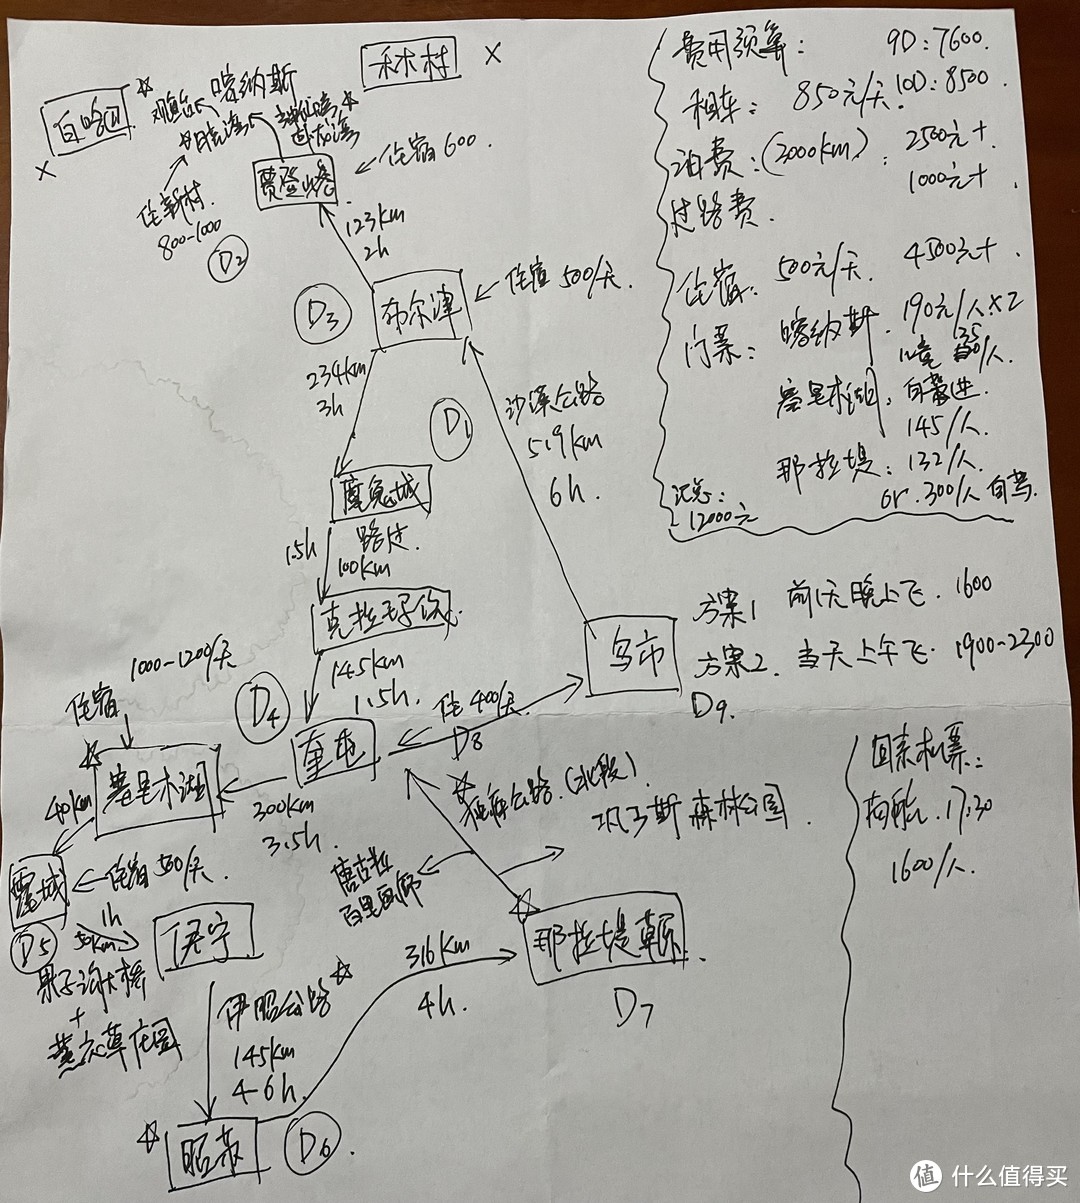 禾木村 ×
白哈巴
×
☆ 喀纳斯
观鱼台
神仙湾 ☆
月亮湾
卧龙湾
贾登峪
←住宿600.
住新村.
800-1000
D2
123km
2h
布尔津
←住宿500/天.
D3
234km
3h
D1
沙漠公路
519km
6h.
魔鬼城
路过.
1.5h
100km
克拉玛依
145km
1.5h.
乌市
1000-1200/天
住宿
D4
奎屯
住400/天
D8
D9.
☆
赛里木湖
300km
3.5h.
40km
霍城
←住宿500/天.
D5
1h
50km
伊宁
果子沟大桥
+
薰衣草庄园
☆独库公路.(北段)
巩乃斯森林公园.
唐古拉
百里画廊
☆
那拉提草原.
D7
316km
4h.
伊昭公路☆
145km
4-6h.
☆
昭苏
D6.
费用预算: 9D:7600.
租车: 850元/天. 10D:8500
油费:(3000km): 2500元+
1000元+.
过路费.
住宿: 500元/天. 4500元+.
门票: 喀纳斯. 190元/人×2
135
/人.
赛里木湖: 自驾进.
145/人.
那拉提: 132/人.
or.300/人 自驾.
汇总:
12000元
方案1 前1天晚上飞. 1600
方案2. 当天上午飞. 1900-2300
回来机票:
17:30
1600/人.
值 什么值得买